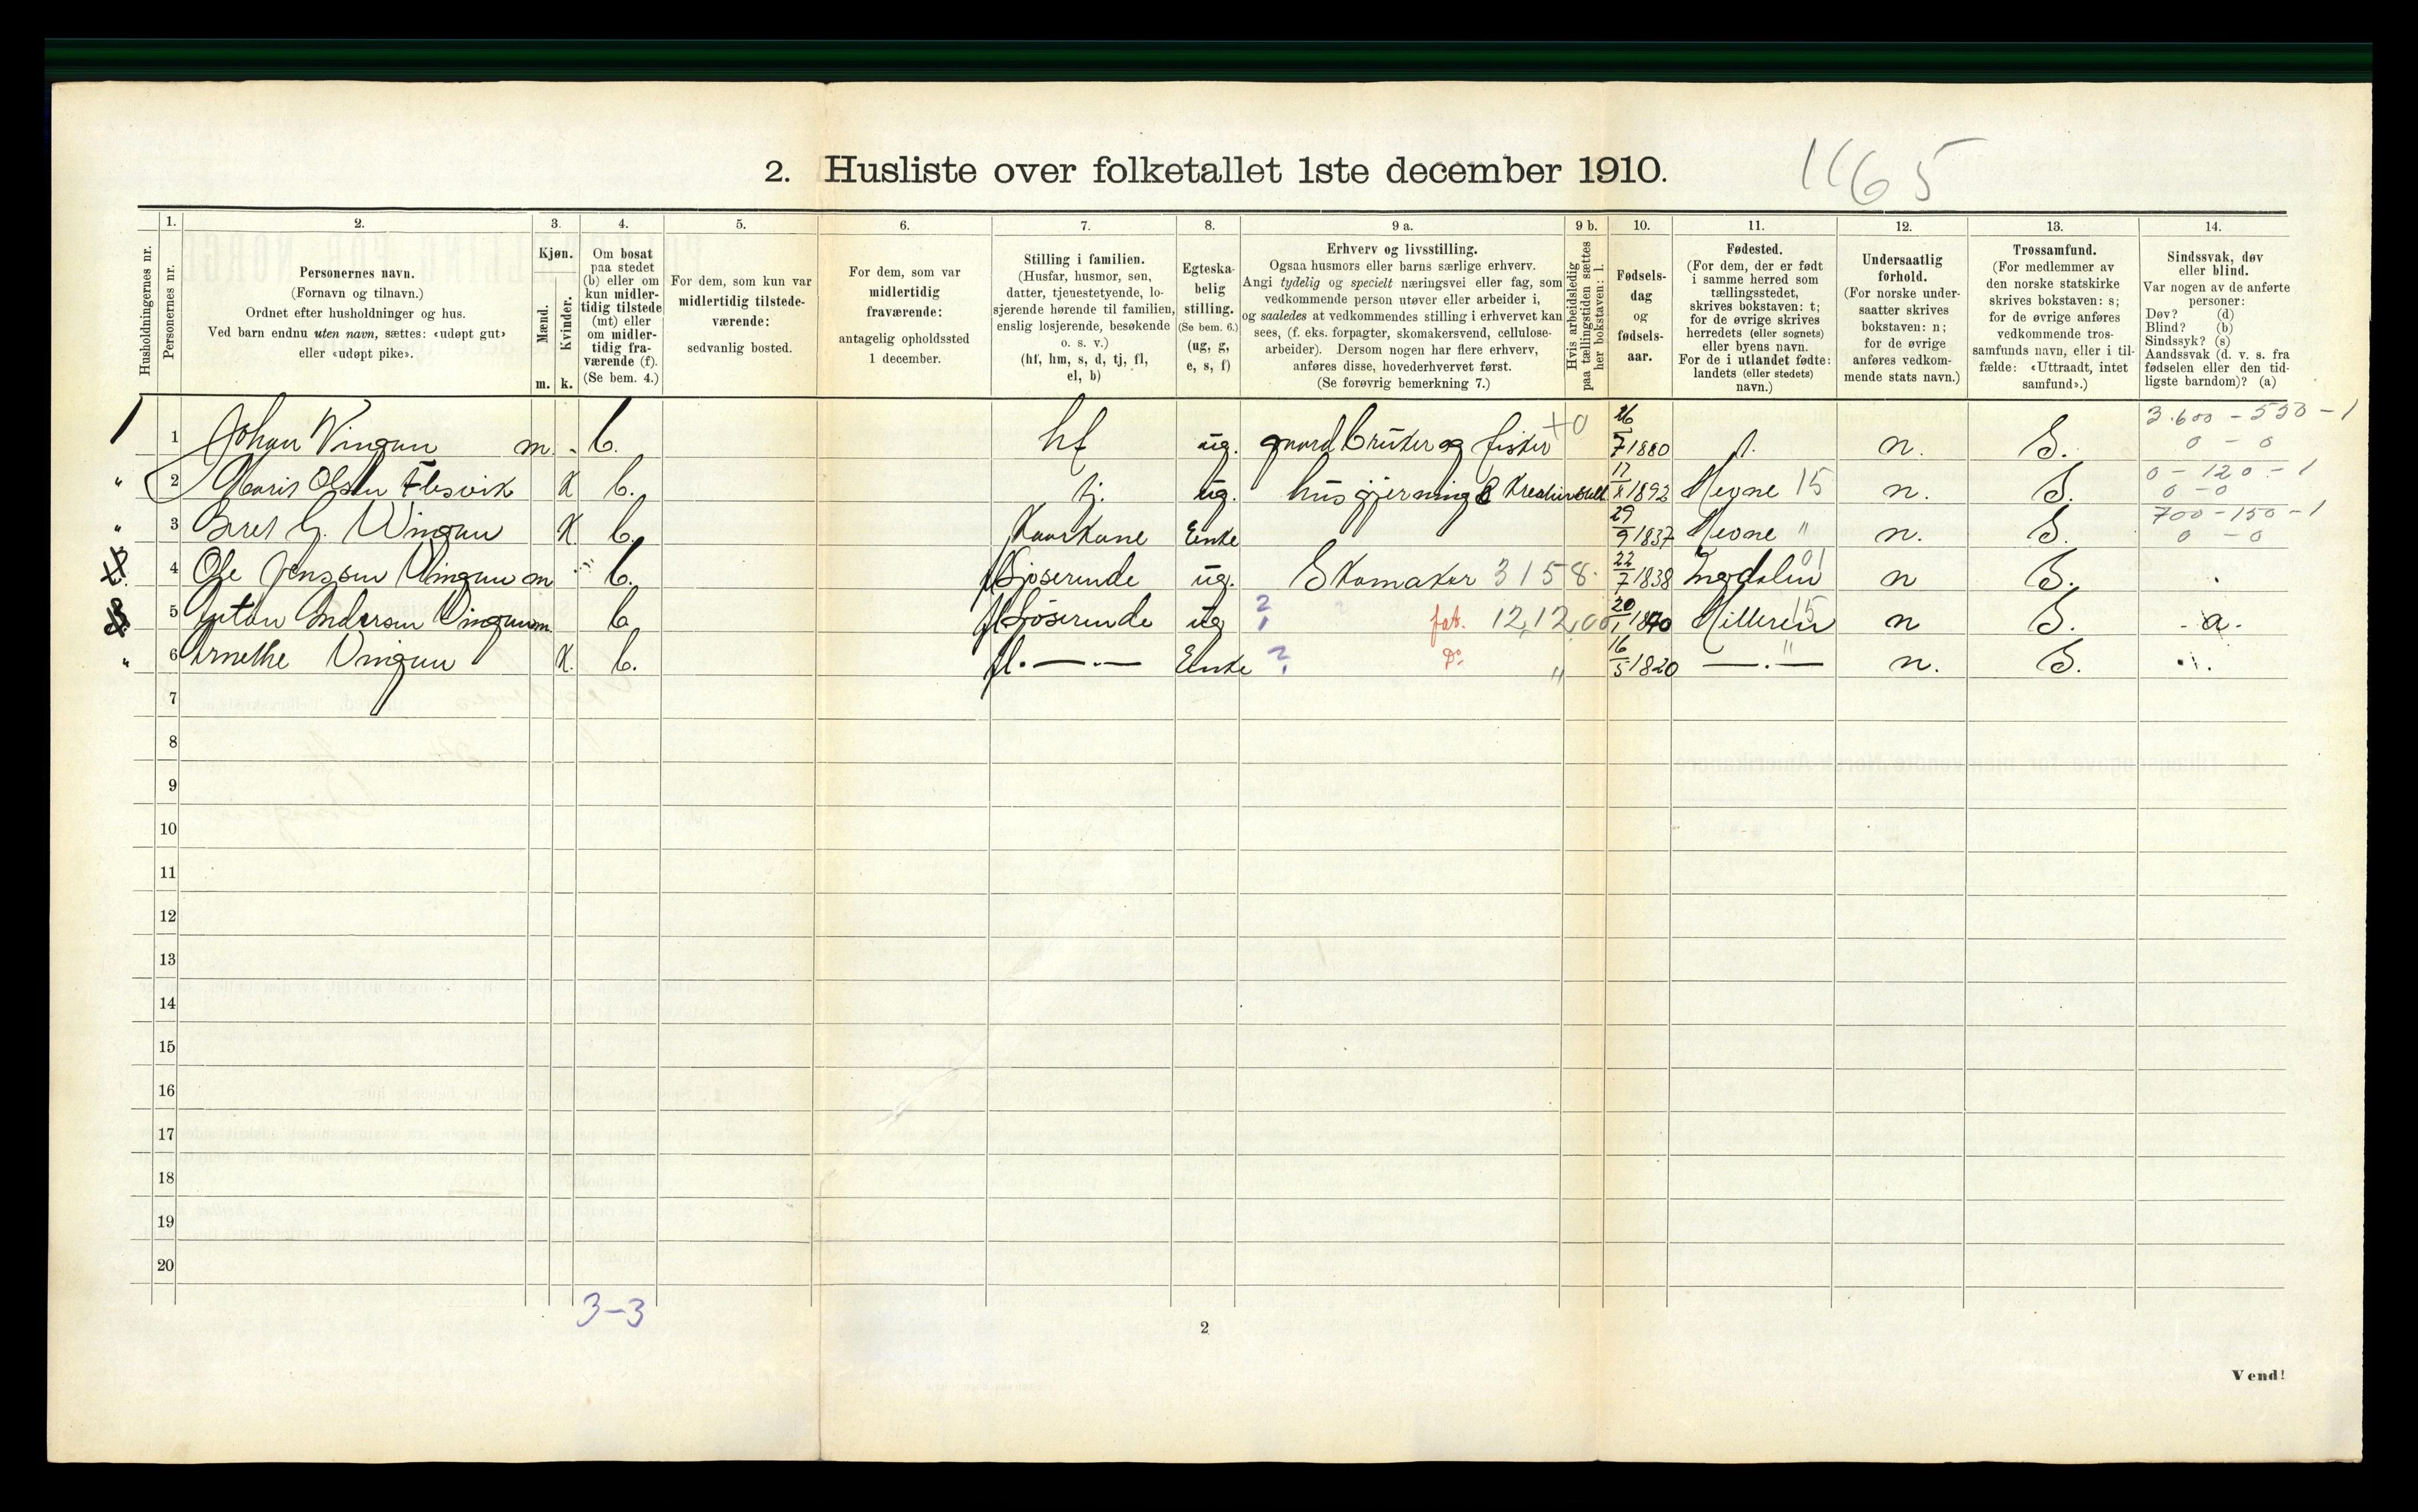 2. Husliste over folketallet 1ste december 1910.
1165
1. 2. 3. 4. 5. 6. 7. 8. 9 a. 9 b. 10. 11. 12. 13. 14.
Husholdningernes nr.
Personernes nr.
Personernes navn.
(Fornavn og tilnavn.)
Ordnet efter husholdninger og hus.
Ved barn endnu uten navn, sættes: «udøpt gut»
eller «udøpt pike».
Kjøn.
Mænd.
Kvinder.
m. k.
Om bosat
paa stedet
(b) eller om
kun midler-
tidig tilstede
(mt) eller
om midler-
tidig fra-
værende (f).
(Se bem. 4.)
For dem, som kun var
midlertidig tilstede-
værende:
sedvanlig bosted.
For dem, som var
midlertidig
fraværende:
antagelig opholdssted
1 december.
Stilling i familien.
(Husfar, husmor, søn,
datter, tjenestetyende, lo-
sjerende hørende til familien,
enslig losjerende, besøkende
o. s. v.)
(hf, hm, s, d, tj, fl,
el, b)
Egteska-
belig
stilling.
(Se bem. 6.)
(ug, g,
e, s, f)
Erhverv og livsstilling.
Ogsaa husmors eller barns særlige erhverv.
Angi tydelig og specielt næringsvei eller fag, som
vedkommende person utøver eller arbeider i,
og saaledes at vedkommendes stilling i erhvervet kan
sees, (f. eks. forpagter, skomakersvend, cellulose-
arbeider). Dersom nogen har flere erhverv,
anføres disse, hovederhvervet først.
(Se forøvrig bemerkning 7.)
Hvis arbeidsledig
paa tællingstiden sættes
her bokstaven: l.
Fødsels-
dag
og
fødsels-
aar.
Fødested.
(For dem, der er født
i samme herred som
tællingsstedet,
skrives bokstaven: t;
for de øvrige skrives
herredets (eller sognets)
eller byens navn.
For de i utlandet fødte:
landets (eller stedets)
navn.)
Undersaatlig
forhold.
(For norske under-
saatter skrives
bokstaven: n;
for de øvrige
anføres vedkom-
mende stats navn.)
Trossamfund.
(For medlemmer av
den norske statskirke
skrives bokstaven: s;
for de øvrige anføres
vedkommende tros-
samfunds navn, eller i til-
fælde: «Uttraadt, intet
samfund».)
Sindssvak, døv
eller blind.
Var nogen av de anførte
personer:
Døv? (d)
Blind? (b)
Sindssyk? (s)
Aandssvak (d. v. s. fra
fødselen eller den tid-
ligste barndom)? (a)
1 1 Johan Vingan m - b. hf ug. gaardbruker og fisker +0 26/7 1880 t. n. S. 3.600 - 550 - 1 0 - 0
" 2 Maris Olsen Flesvik K b. tj. ug. husgjerning & Kreaturstell 17/X 1892 Hevne 15 n. S. 0 - 120 - 1 0 - 0
" 3 Beret G. Wingan K b. Kaarkone Enke 29/9 1837 Hevne " n. S. 700 - 150 - 1 0 - 0
4 Ole Jensen Vingan m b. fl losjerende ug. Skomaker 3158 22/7 1838 01 n S.
5 Anton Andersen Vingan m. b fl losjerende ug ? fat. 12,12,00 20/1 Hitteren 15 n S. - a -
" 6 Arnethe Vingan K. b. fl. —.— Enke ? Do " 16/5 1820 —.— " n. S.
7
8
9
10
11
12
13
14
15
16
17
18
19
20
3-3
2
Vend!